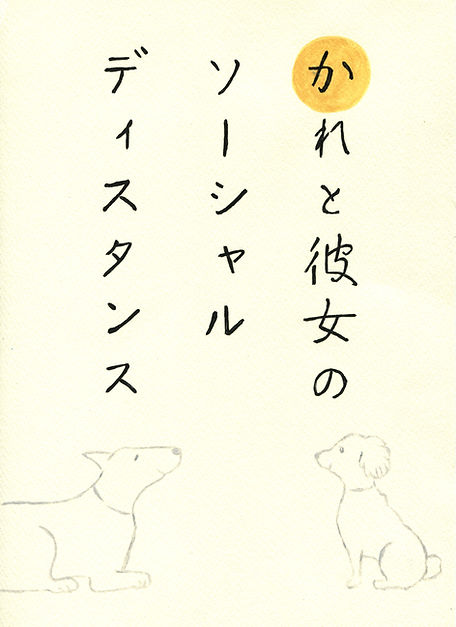 かれと彼女の
ソーシャル
ディスタンス